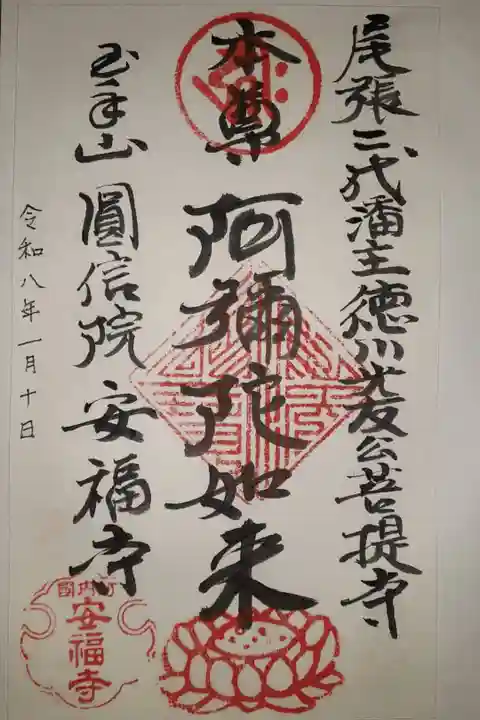 尾張二代藩主徳川光友公菩提寺
本尊 阿彌陀如来
玉手山 圓信院 安福寺
令和八年一月十日
河内國
安福寺